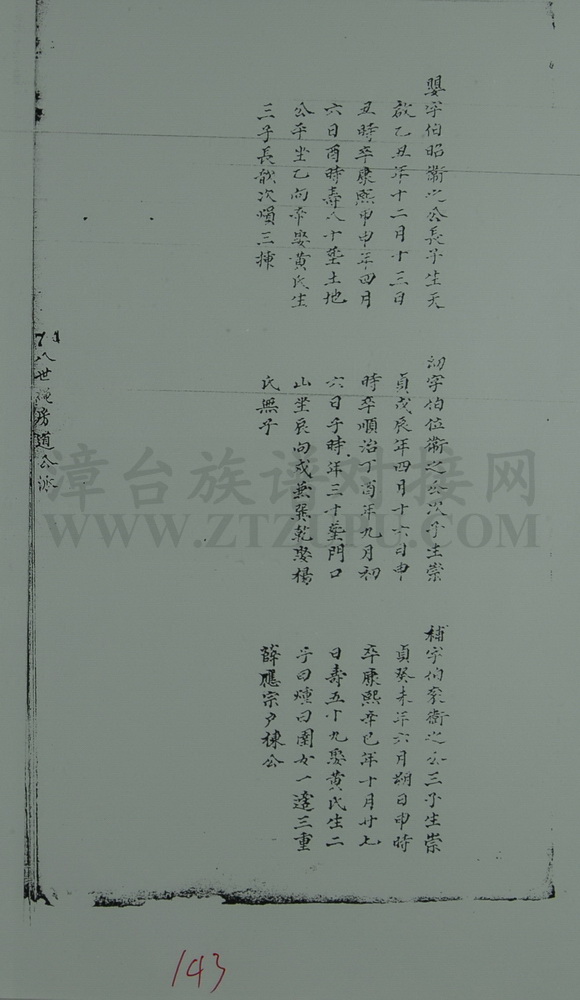 嬰字伯昭衛之公長子生天
啟乙丑年十二月十三日
丑時卒康熙甲申年四月
六日酉時壽八十塟土地
公平坐乙向辛娶黃氏生
三子長 次 三揀
㓜字伯位衛之公次子生崇
貞戊辰年四月十六日申
時卒順治丁酉年九月初
六日子時年三十塟門口
山坐辰向戌兼巽乾娶楊
氏無子
補字伯 衛之公三子生崇
貞癸未年六月朔日申時
卒康熙辛巳年十月廿七
日壽五十九娶黃氏生二
子曰 曰圍女一適三重
薛應宗戶棟公
八世 房道公派
漳台族谱对接网
WWW.ZTZUPU.COM
143